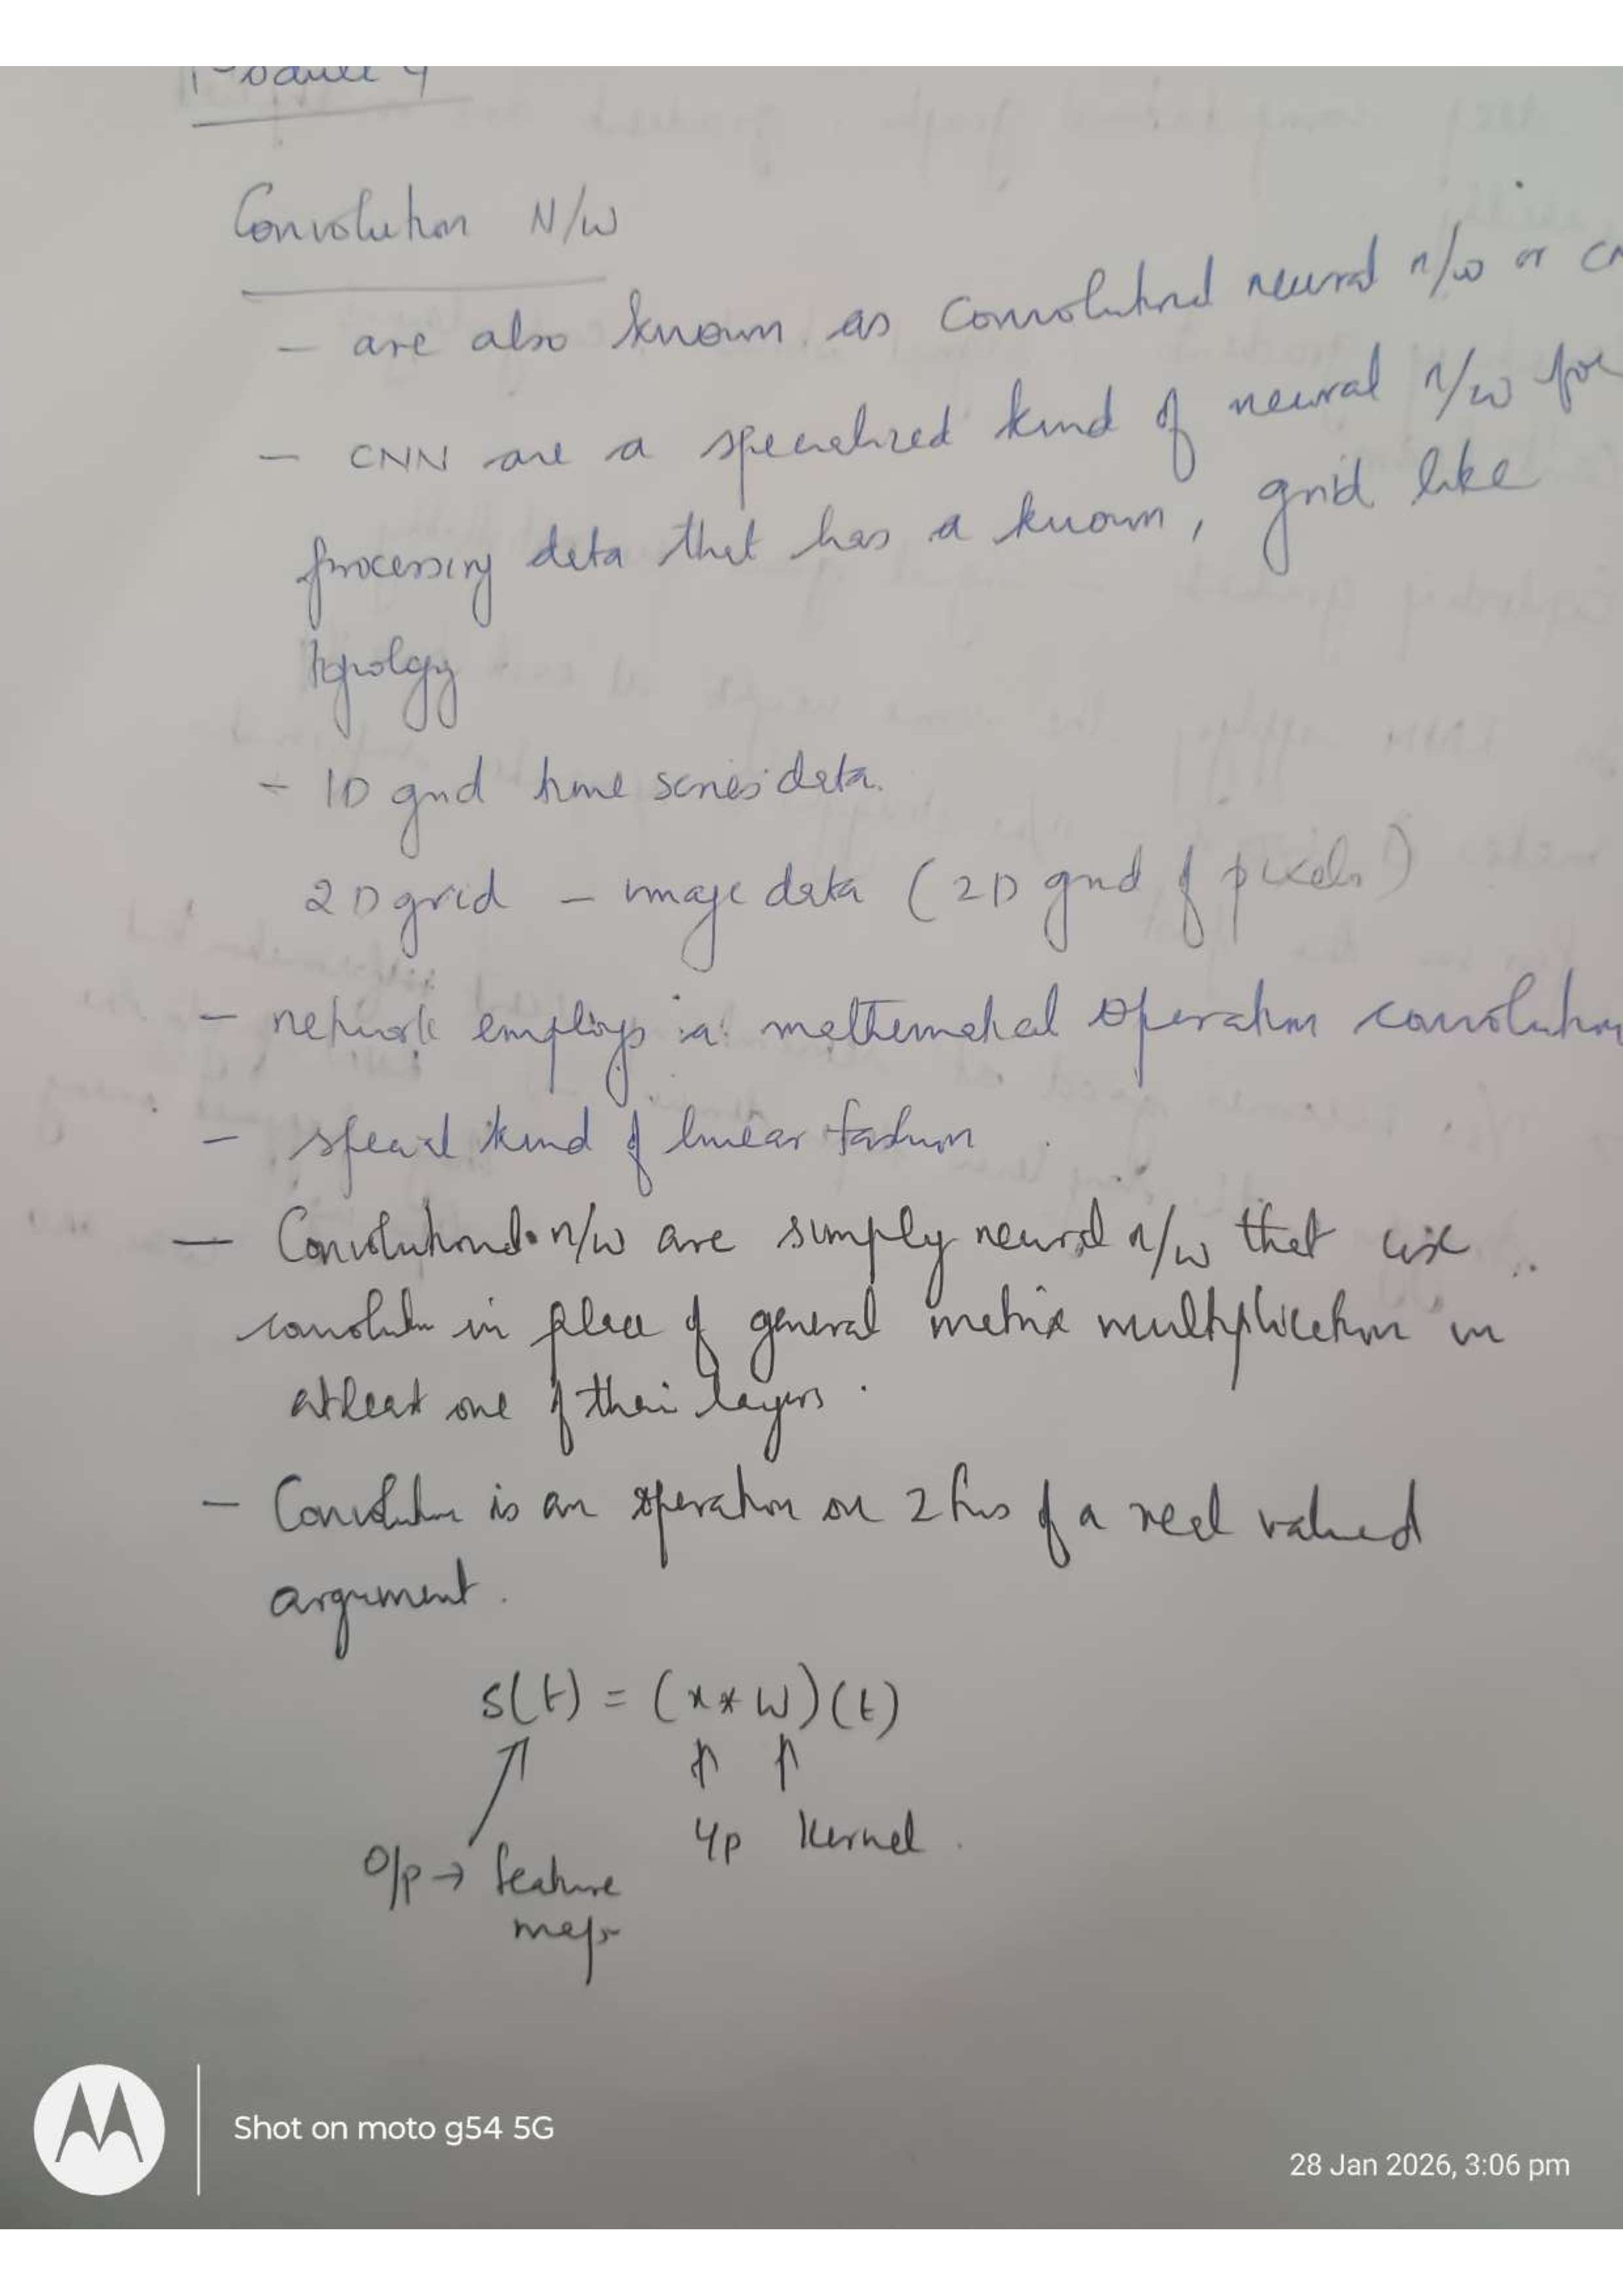 Module 4
Convolution N/W
- are also known as Convolutional neural n/w or CN
- CNN are a specialized kind of neural n/w for
processing data that has a known, grid like
topology
- 1D grid time series data.
2D grid - image data (2D grid of pixels)
- network employs a mathematical operation convolution
- special kind of linear fashion
- Convolutional n/w are simply neural n/w that use
convolution in place of general matrix multiplication in
atleast one of their layers.
- Convolution is an operation on 2 fns of a real valued
argument.
s(t) = (x * w)(t)
I/p Kernel.
O/p → feature
map
Shot on moto g54 5G
28 Jan 2026, 3:06 pm